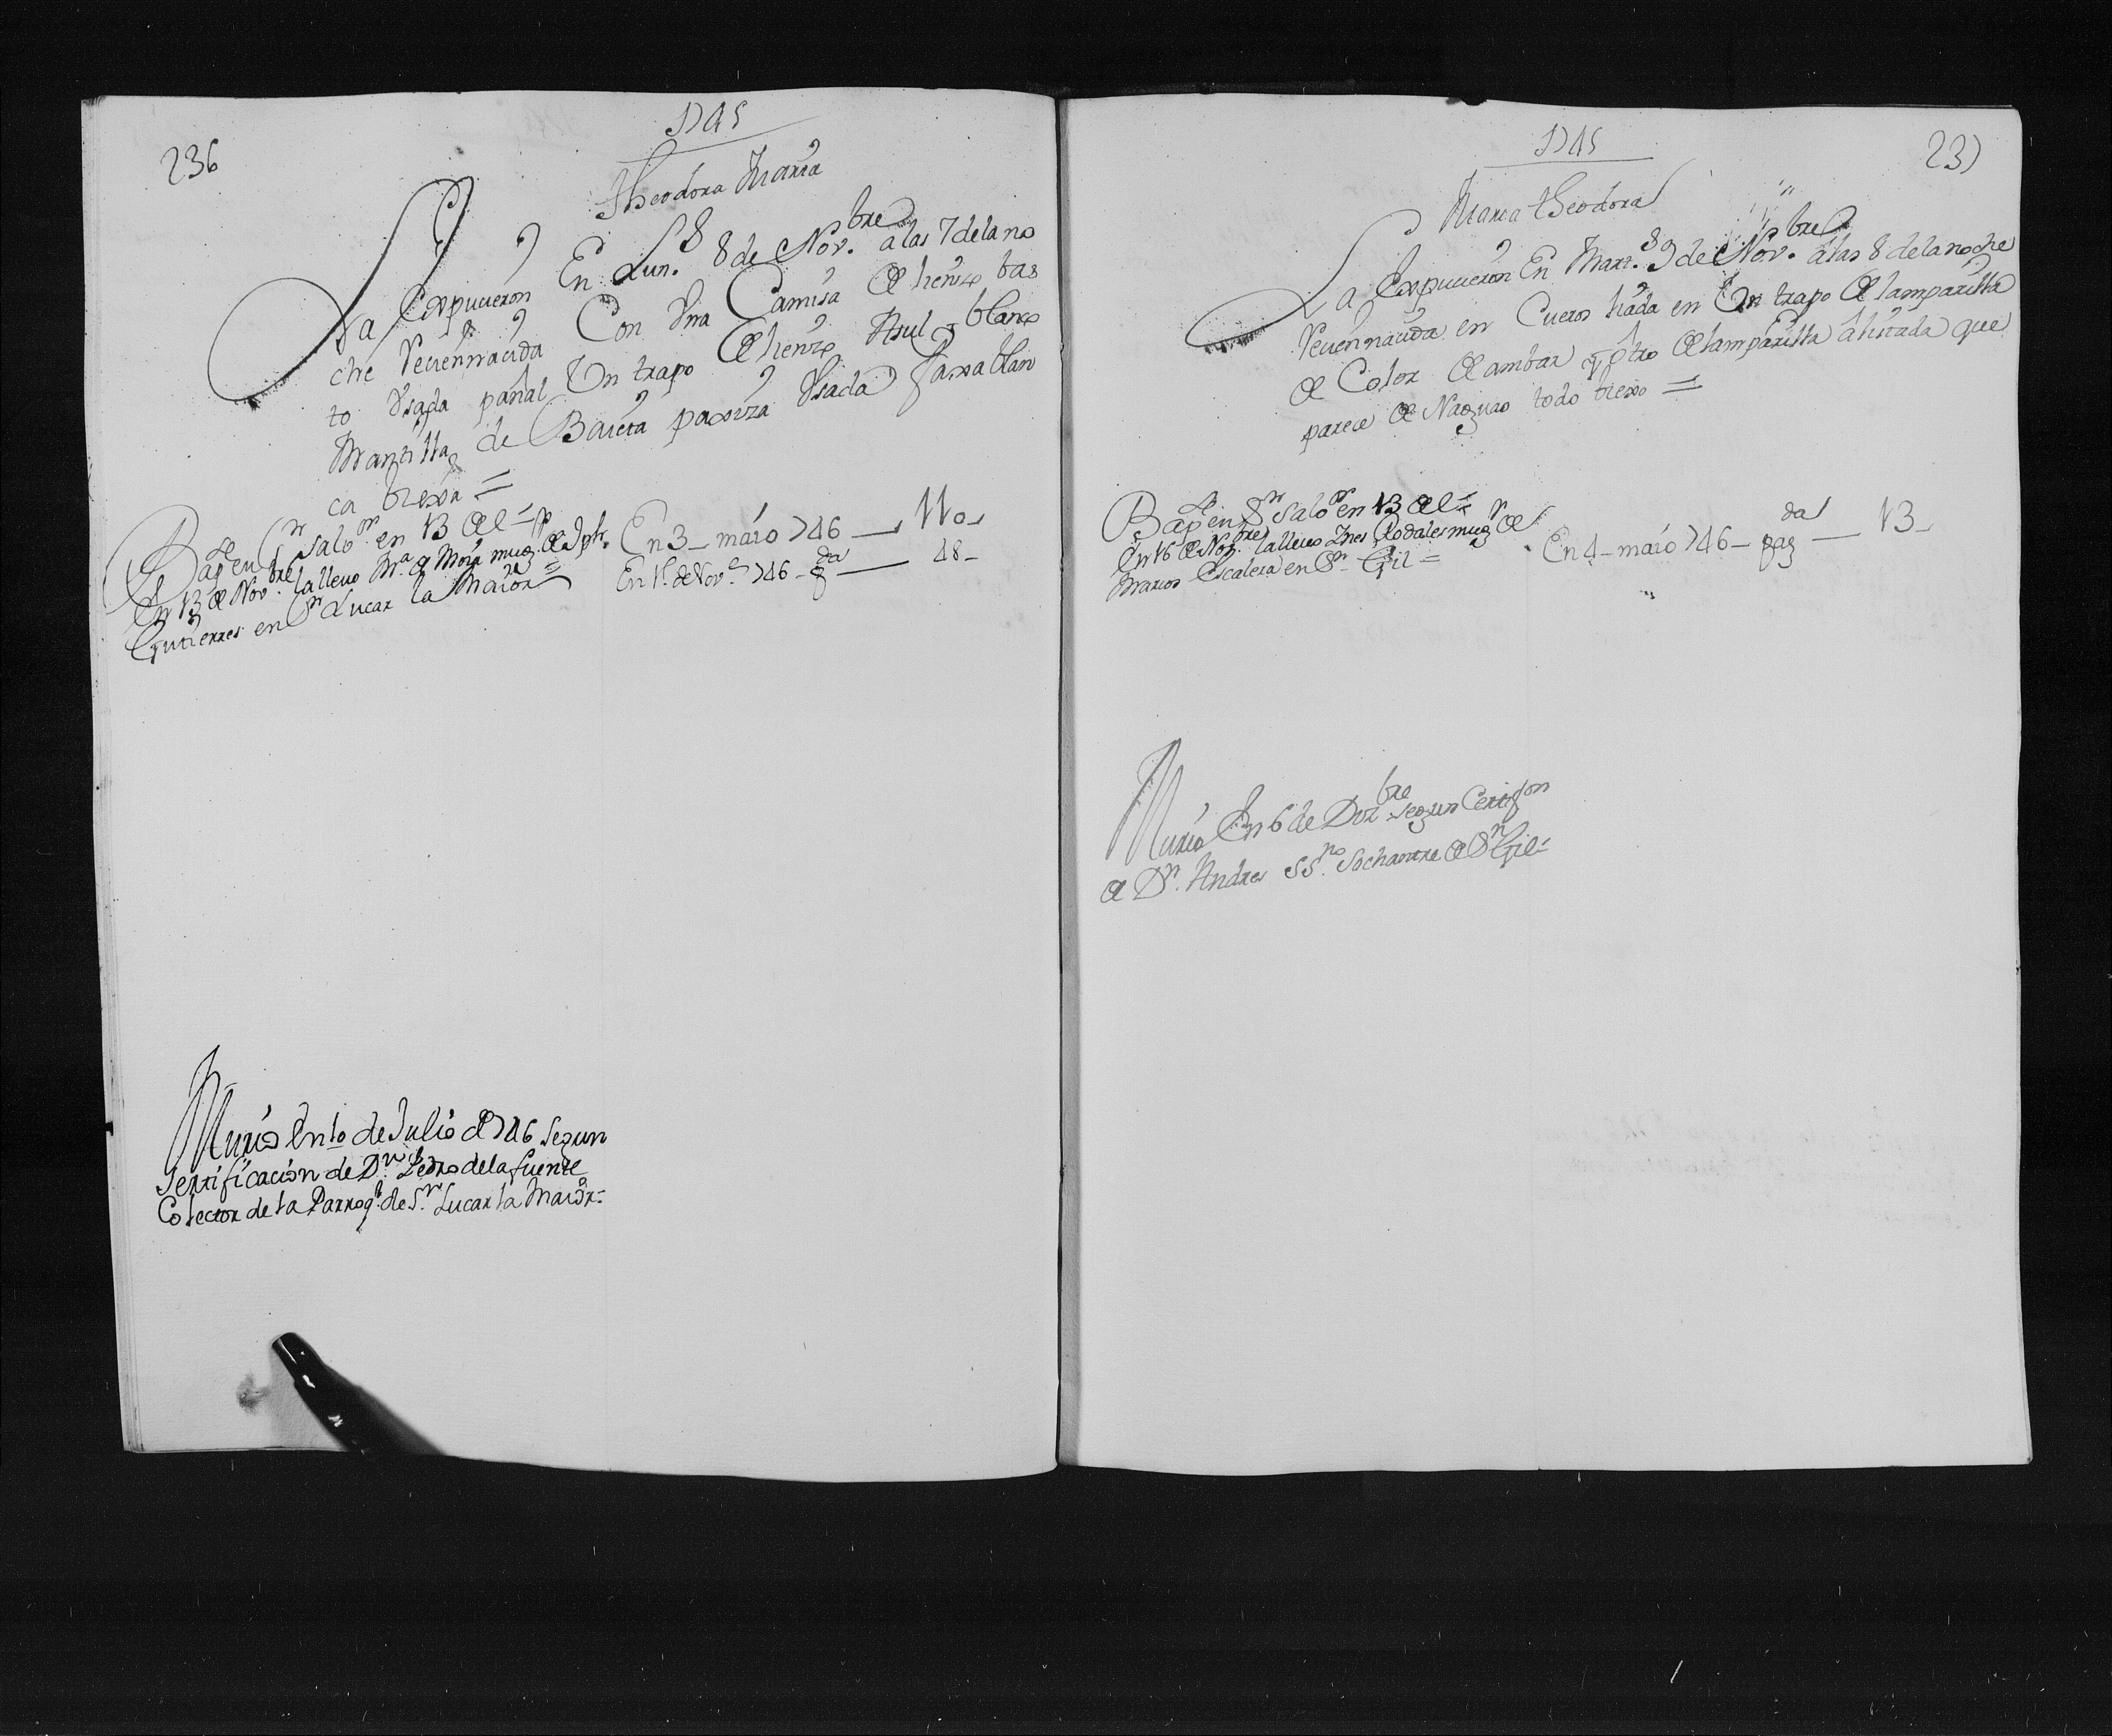 236
1745
Theodora Maria
La Expucieron En Lun.s 8 de Nov.bre a las 7 de la no
che Recien nacida Con Una Camisa de lienzo bas
to Usada pañal Un trapo de lienzo Asul y blanco
Mantilla de Baieta paxiza Usada faxa blan
ca biexa =
Bap.da en S.n Salo.or en 13 de el =
En 13 de Nov.bre la llevo M.a de Mora mug.r de Jph.
Gutierres en S.n Lucar la Maior =
En 3 - maio 746 — 110
En 1.º de Nov.e 746 - da — 48 -
Murio En 10 de Julio de 746 segun
sertificacion de D.n Pedro de la fuente
Colector de la Parroq.l de S.n Lucar la Maior =
1745
237
Maria theodora
La Expucieron En Mart.s 9 de Nov.bre a las 8 de la noche
Recien nacida en Cueros liada en Un trapo de lamparilla
de Color de ambar y otro de lamparilla alistada que
parece de Naguas todo biexo =
Bap.da en S.n Salo.or en 13 de el =
En 16 de Nov.bre la llevo Ines Rodales mug.r de
Marcos Escalera en S.n Gil =
En 4 - maio 746 - pag.da — 13 -
Murio En 6 de Dez.bre segun Certif.on
de D.n Andres SS.no Sochantre de S.n Gil =